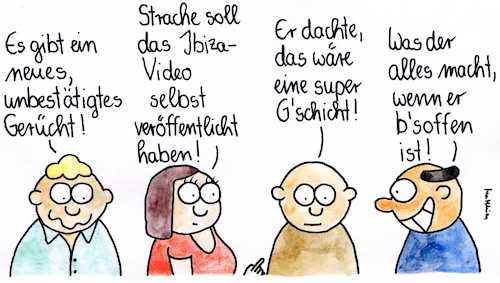 Es gibt ein
neues,
unbestätigtes
Gerücht!
Strache soll
das Ibiza-
Video
selbst
veröffentlicht
haben!
Er dachte,
das wäre
eine super
G'schicht!
Was der
alles macht,
wenn er
b'soffen
ist!